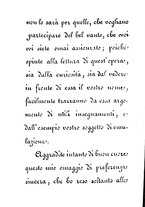 non lo sarà per quelle, che vogliano
partecipare del bel vanto, che ove
vi siete omai assicurate; poichè
spinto alla lettura di quest'opera,
sia dalla curiosità, sia dal vedere
in fronte di essa il vostro nome,
facilmente trarranno da essa argo-
mento di utili insegnamenti, e
dall'esempio vostro soggetto di emu-
lazione.
Aggradite intanto di buon cuore
questo mio omaggio di preferenza
sincera, che ho reso soltanto alle